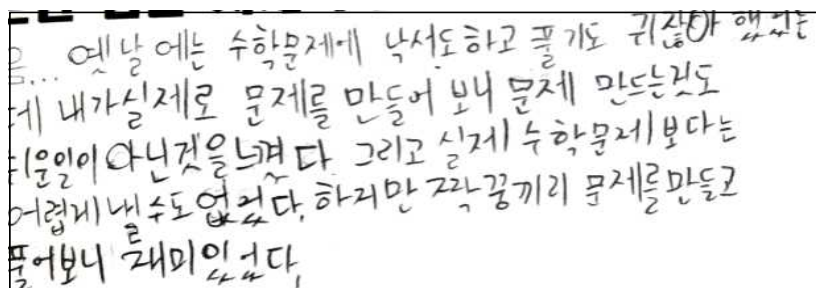 음... 옛날에는 수학문제에 낙서도하고 풀기도 귀찮아 했었는
데 내가실제로 문제를 만들어 보니 문제 만드는것도
쉬운일이 아닌것을느꼈다. 그리고 실제 수학문제보다는
어렵게 낼 수도 없었다. 하지만 짝꿍끼리 문제를만들고
풀어보니 재미있었다.